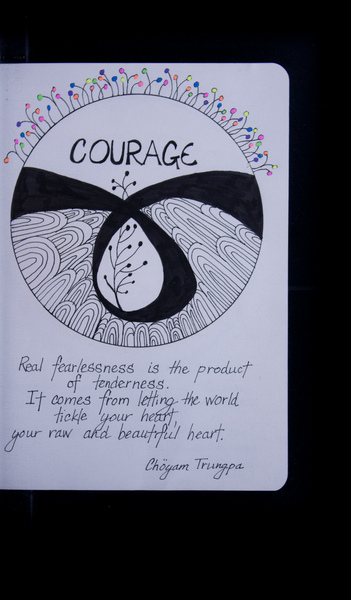 COURAGE
Real fearlessness is the product
of tenderness.
It comes from letting the world
tickle your heart,
your raw and beautiful heart.
Chöyam Trungpa